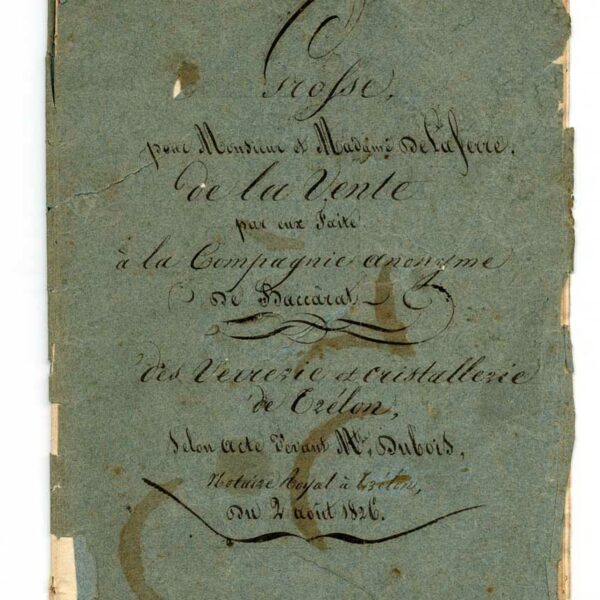 Grosse,
pour Monsieur et Madame De Laferre,
de la Vente
par eux Faite
à la Compagnie anonyme
De Baccarat
des Verrerie et cristallerie
de Trélon,
Selon acte devant Me. Dubois,
Notaire Royal à Trélon,
Du 2 août 1826.